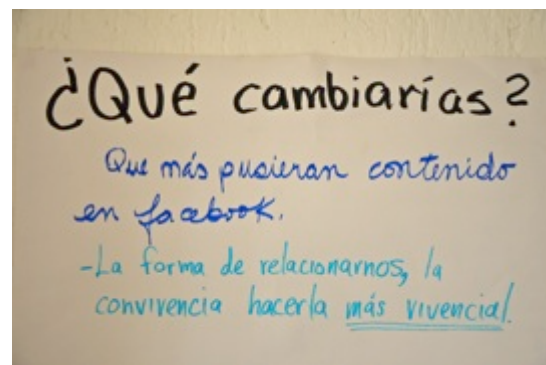 ¿Qué cambiarías?
Que más pusieran contenido
en facebook.
-La forma de relacionarnos, la
convivencia hacerla más vivencial.